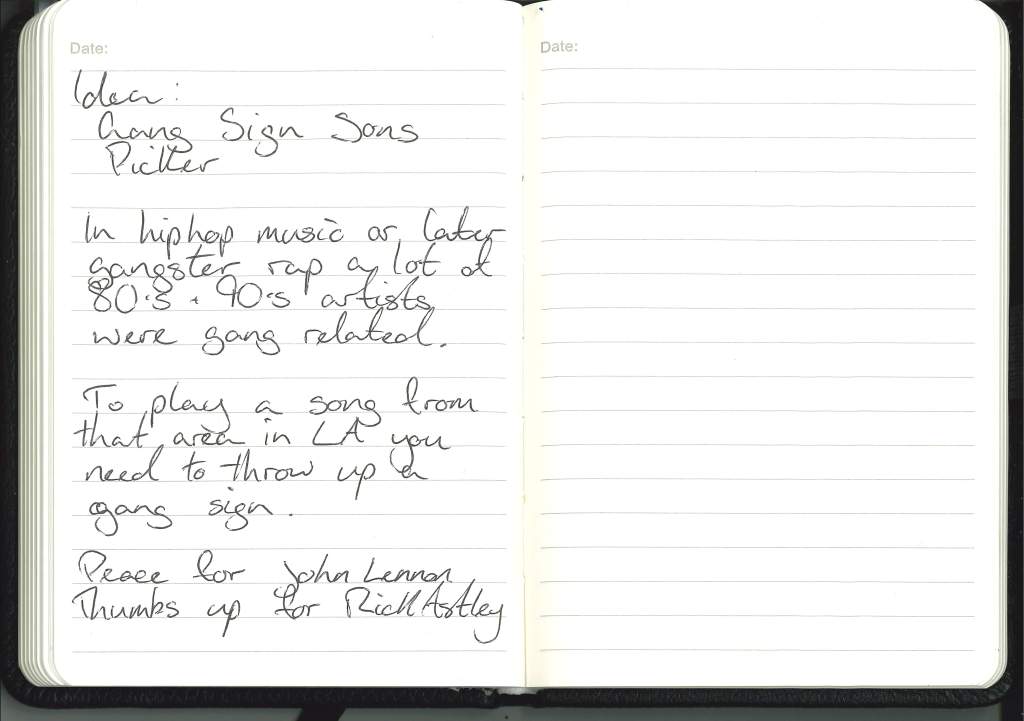 Date:
Date:
Idea:
Gang Sign Sons
Picker
In hiphop music or later
gangster rap a lot of
80's + 90's artists
were gang related.
To play a song from
that area in LA you
need to throw up a
gang sign.
Peace for John Lennon
Thumbs up for Rick Astley